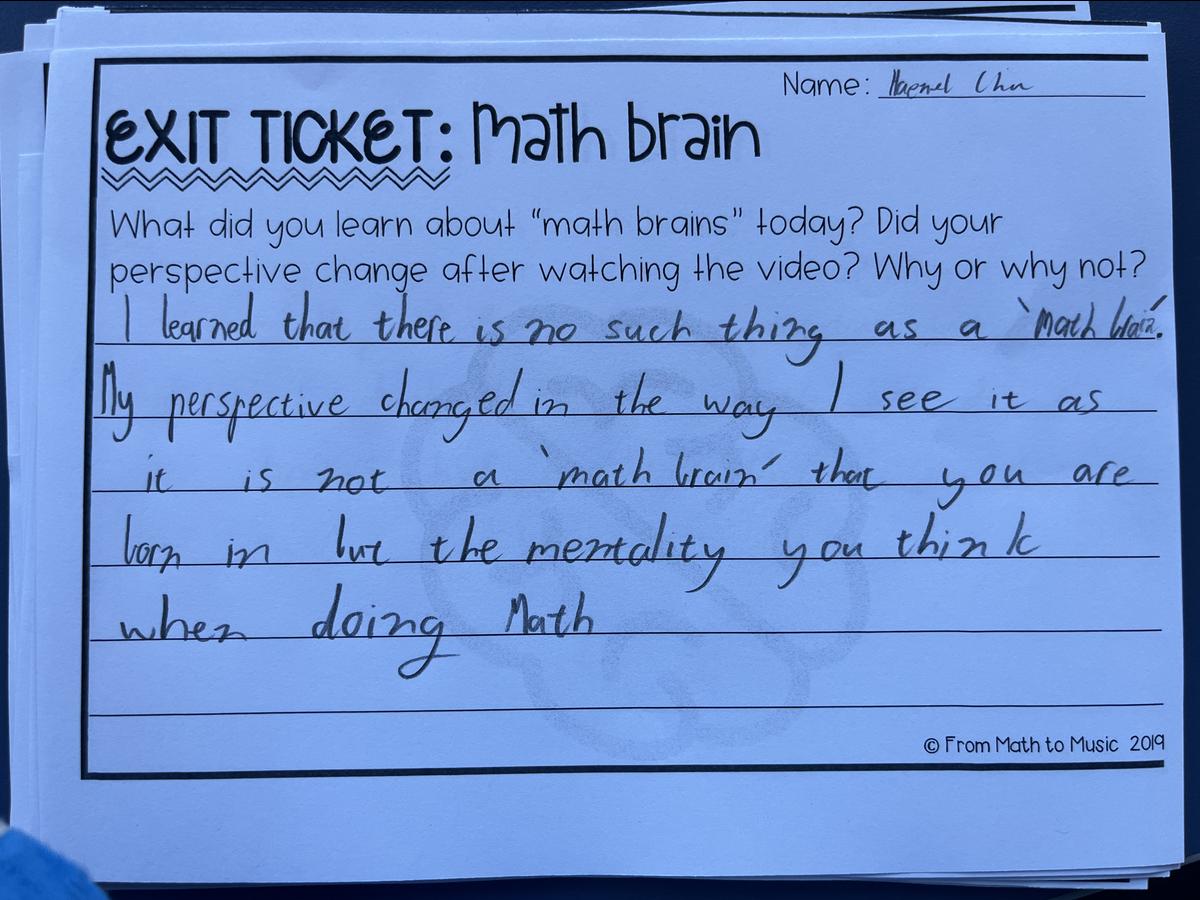 Name:
EXIT TICKET: Math brain
What did you learn about "math brains" today? Did your
perspective change after watching the video? Why or why not?
I learned that there is no such thing as a 'math brain'.
My perspective changed in the way I see it as
it is not a 'math brain' that you are
born in but the mentality you think
when doing Math
© From Math to Music 2019